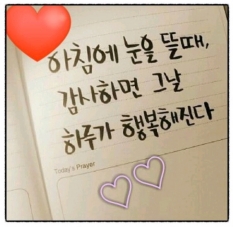 아침에 눈을 뜰때,
감사하면 그날
하루가 행복해진다
Today's Prayer